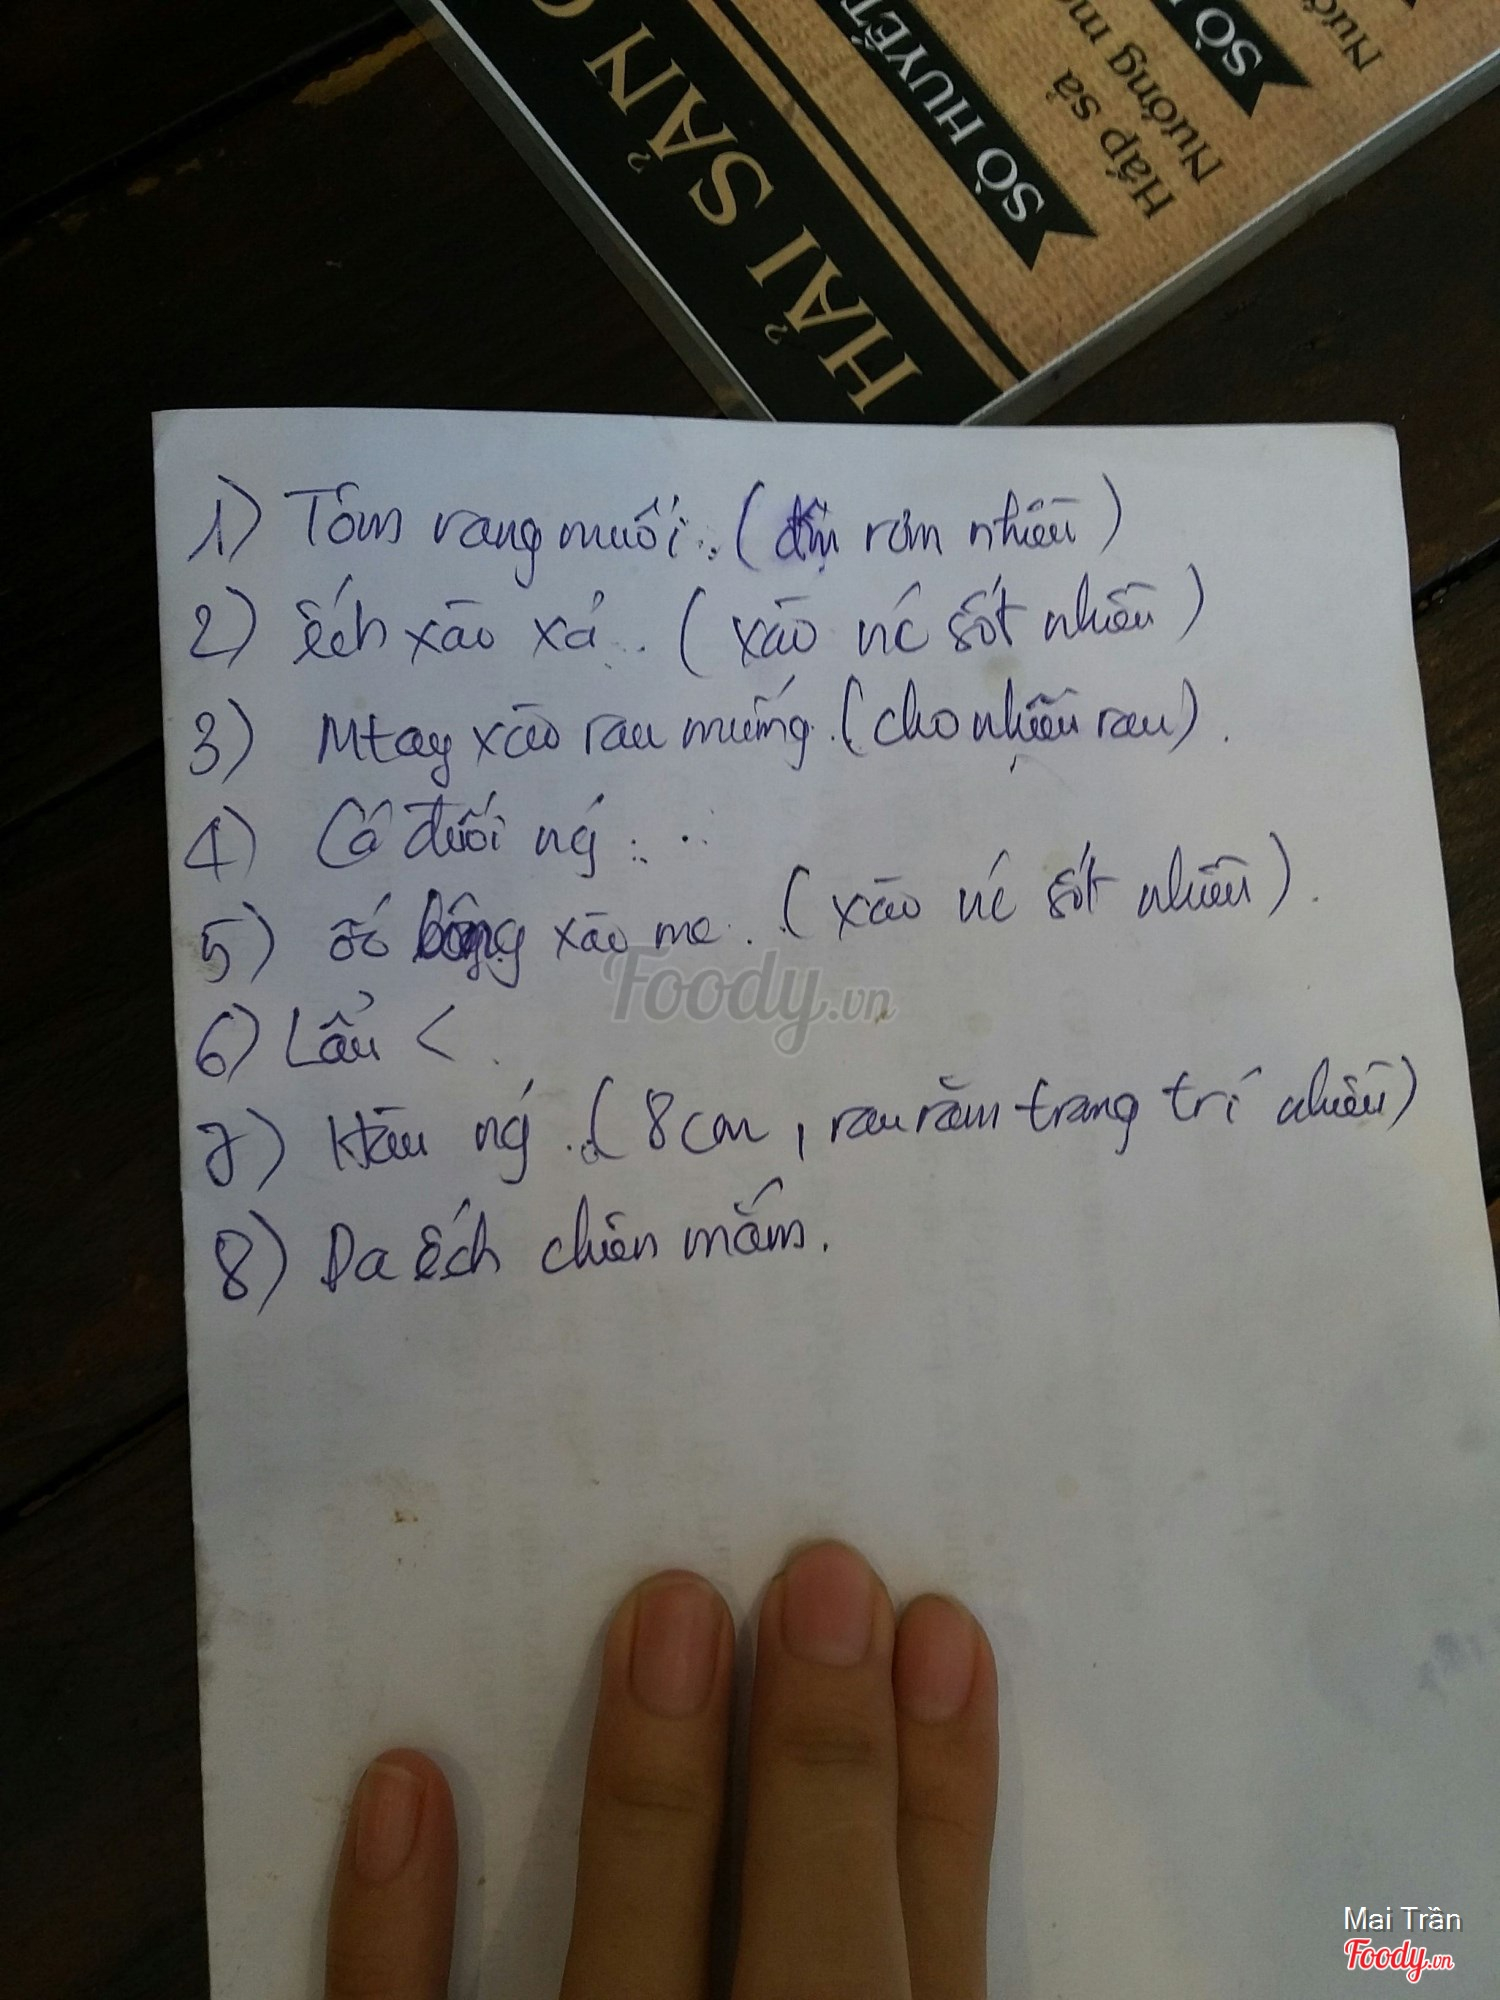 HẢI SẢN
SÒ HUYẾT
Hấp sả
Nướng m
SÒ
Nướ
1) Tôm rang muối (rơm nhiều)
2) Ếch xào xả (xào nc sốt nhiều)
3) Mtay xào rau muống (cho nhiều rau).
4) Cá đuối ng
5) ốc bông xào me. (xào nc sốt nhiều).
6) Lẩu <
7) Hàu ng (8 con, rau răm trang trí nhiều)
8) Da ếch chiên mắm.
Foody.vn
Mai Trần
Foody.vn